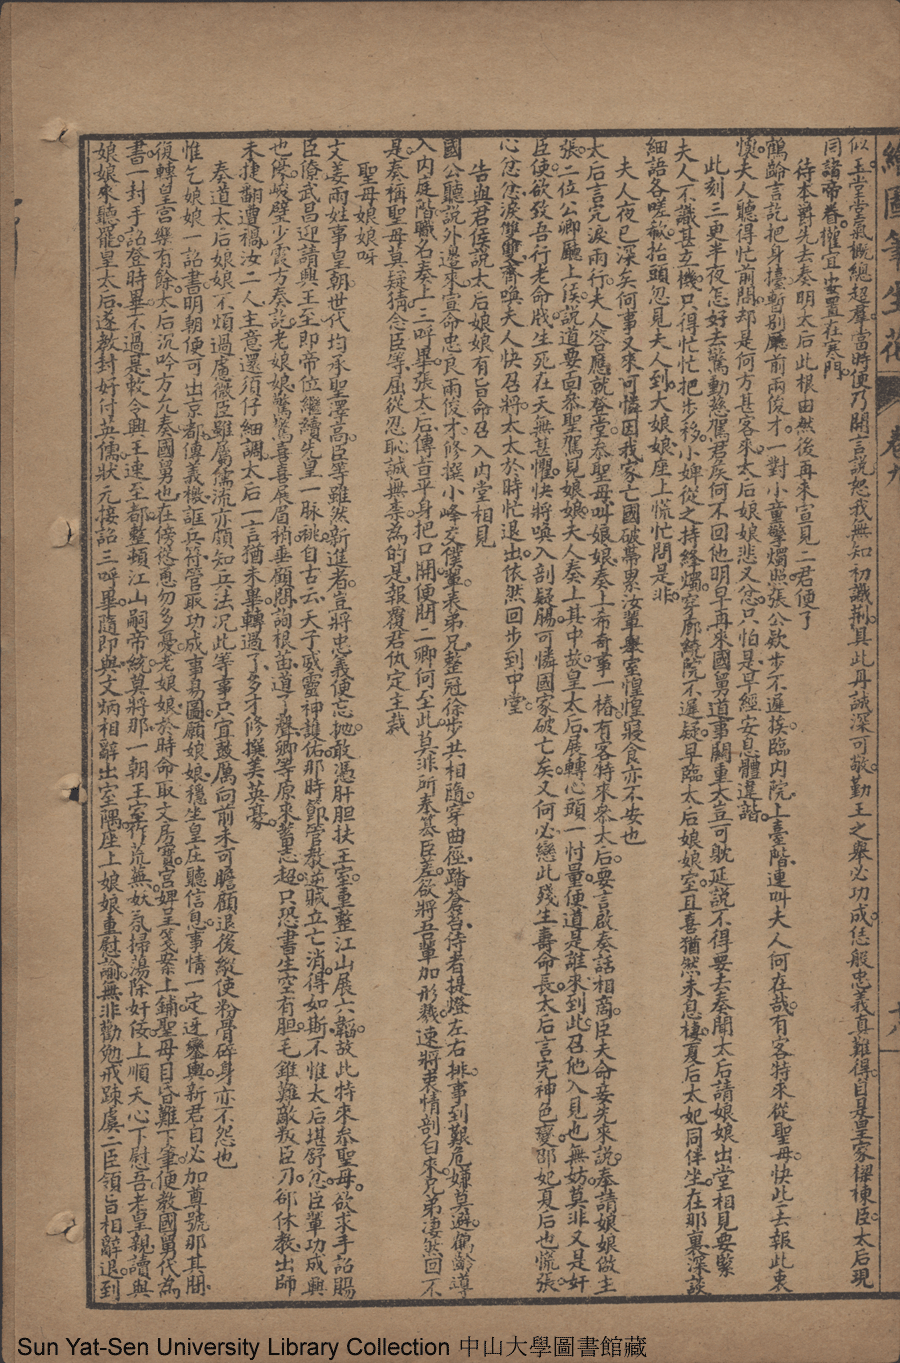 繪圖筆生花 卷九
似玉堂堂氣概總超羣當時便乃開言說恕我無知初識荆具此丹誠深可敬勤王之舉必功成恁般忠義真難得自是皇家樑棟臣太后現
同諸帝眷權宜安置在寒門
待本爵先去奏明太后此根由然後再來宣見二君便了
鶴齡言訖把身擡暫别廳前兩俊才一對小童擎燭照張公欵步不遲挨臨内院上臺階連叫夫人何在哉有客特來從聖母快此去報此衷
懷夫人聽得忙前問却是何方甚客來太后娘娘悲又忿只怕是早經安息體違諧
此刻三更半夜怎好去驚動慈駕君侯何不回他明早再來國舅道事關重大豈可躭延說不得要去奏聞太后請娘娘出堂相見要緊
夫人不識甚玄機只得忙忙把步移小婢從之持絳燭穿廊繞院不遲疑早臨太后娘娘室且喜猶然未息棲夏后太妃同伴坐在那裏深談
細語各嗟觱抬頭忽見夫人到大娘娘座上慌忙問是非
夫人夜已深矣何事又來可憐因我家亡國破帶累汝輩舉室惶惶寢食亦不安也
太后言完淚兩行夫人答應就登堂奏聖母叫娘娘奏上希奇事一樁有客特來參太后要言啟奏話相商臣夫命妾先來說奉請娘娘做主
張二位公卿廳上俟說道要面參聖駕見娘娘夫人奏上其中故皇太后展轉心頭一忖量便道是誰來到此召他入見也無妨莫非又是奸
臣使欲致吾行老命戕生死在天無甚懼快將喚入剖疑腸可憐國家破亡矣又何必戀此殘生壽命長太后言完神色變邵妃夏后也慌張
心忿忿淚雙雙齊喚夫人快召將太太於時忙退出依然回步到中堂
告與君侯說太后娘娘有旨命召入内堂相見
國公聽說外邊來宣命忠良兩俊才修撰小峰交僕輩表弟兄整冠徐步共相隨穿曲徑踏蒼苔侍者提燈左右排事到艱危嫌莫避鶴齡導
入内庭階職名奏上三呼畢張太后傳言平身把口開便問二卿何至此莫非所奉篡臣差欲將吾輩加形戮速將衷情剖白來兄弟淒然回不
是奏稱聖母莫疑猜念臣等屈從忍恥誠無柰為的是報覆君仇定主裁
聖母娘娘呀
文姜兩姓事皇朝世代均承聖澤高臣等雖然新進者豈將忠義便忘抛敢憑肝胆扶王室重整江山展六韜故此特來參聖母欲求手詔賜
臣僚武昌迎請興王至即帝位繼續先皇一脉祧自古云天子威靈神護佑那時節管教逆賊立亡消得如斯不惟太后堪舒忿臣輩功成興
也僥巍璧少霞方奏訖老娘娘驚驚喜喜展眉梢垂顧問詢根苗道了聲卿等原來蓄志超只恐書生空有胆毛錐難敵叛臣刀郤休教出師
未捷翻遭禍汝二人主意還須仔細調太后一言猶未畢轉過了多才修撰美英豪
奏道太后娘娘不煩過慮微臣雖屬儒流亦頗知兵法况此等事只宜鼓厲向前未可瞻顧退後縱使粉骨碎身亦不怨也
惟乞娘娘一詔書明朝便可出京都傳義檄誆兵符管取功成事易圖願娘娘穩坐皇庄聽信息事情一定迓鑾輿新君自必加尊號那其間
復轉皇宫樂有餘太后沉吟方允奏國舅也在傍慫恿勿多憂老娘娘於時命取文房寶宫婢呈箋案上鋪聖母目昏難下筆便教國舅代為
書一封手詔登時畢不過是敕令興王速至都整頓江山嗣帝統莫將那一朝王室柞荒蕪妖氛掃蕩除奸佞上順天心下慰吾老皇親讀與
娘娘來聽罷皇太后遂教封好付英儒狀元接詔三呼畢隨即與文炳相辭出室隅座上娘娘重慰諭無非勸勉戒疎虞二臣領旨相辭退到
Sun Yat-Sen University Library Collection 中山大學圖書館藏